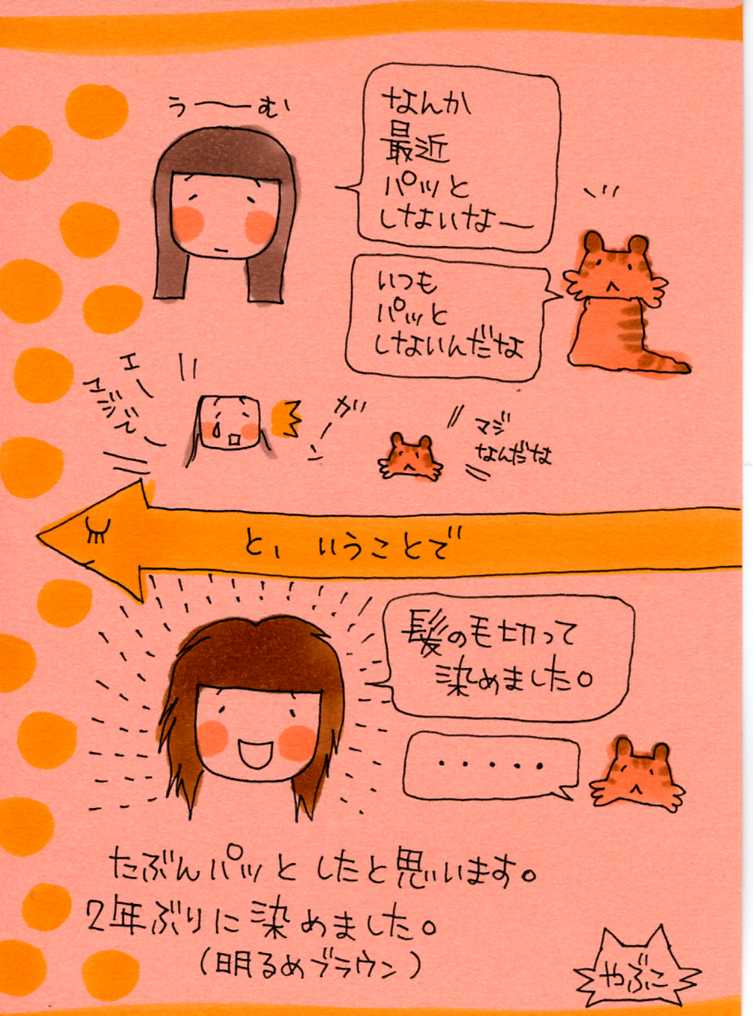 う──む
なんか
最近
パッと
しないなー
いつも
パッと
しないんだな
エー
マジでー
ガーン
マジ
なんだな
と、いうことで
髪の毛切って
染めました。
・・・・・
たぶんパッとしたと思います。
2年ぶりに染めました。
(明るめブラウン)
やぶこ